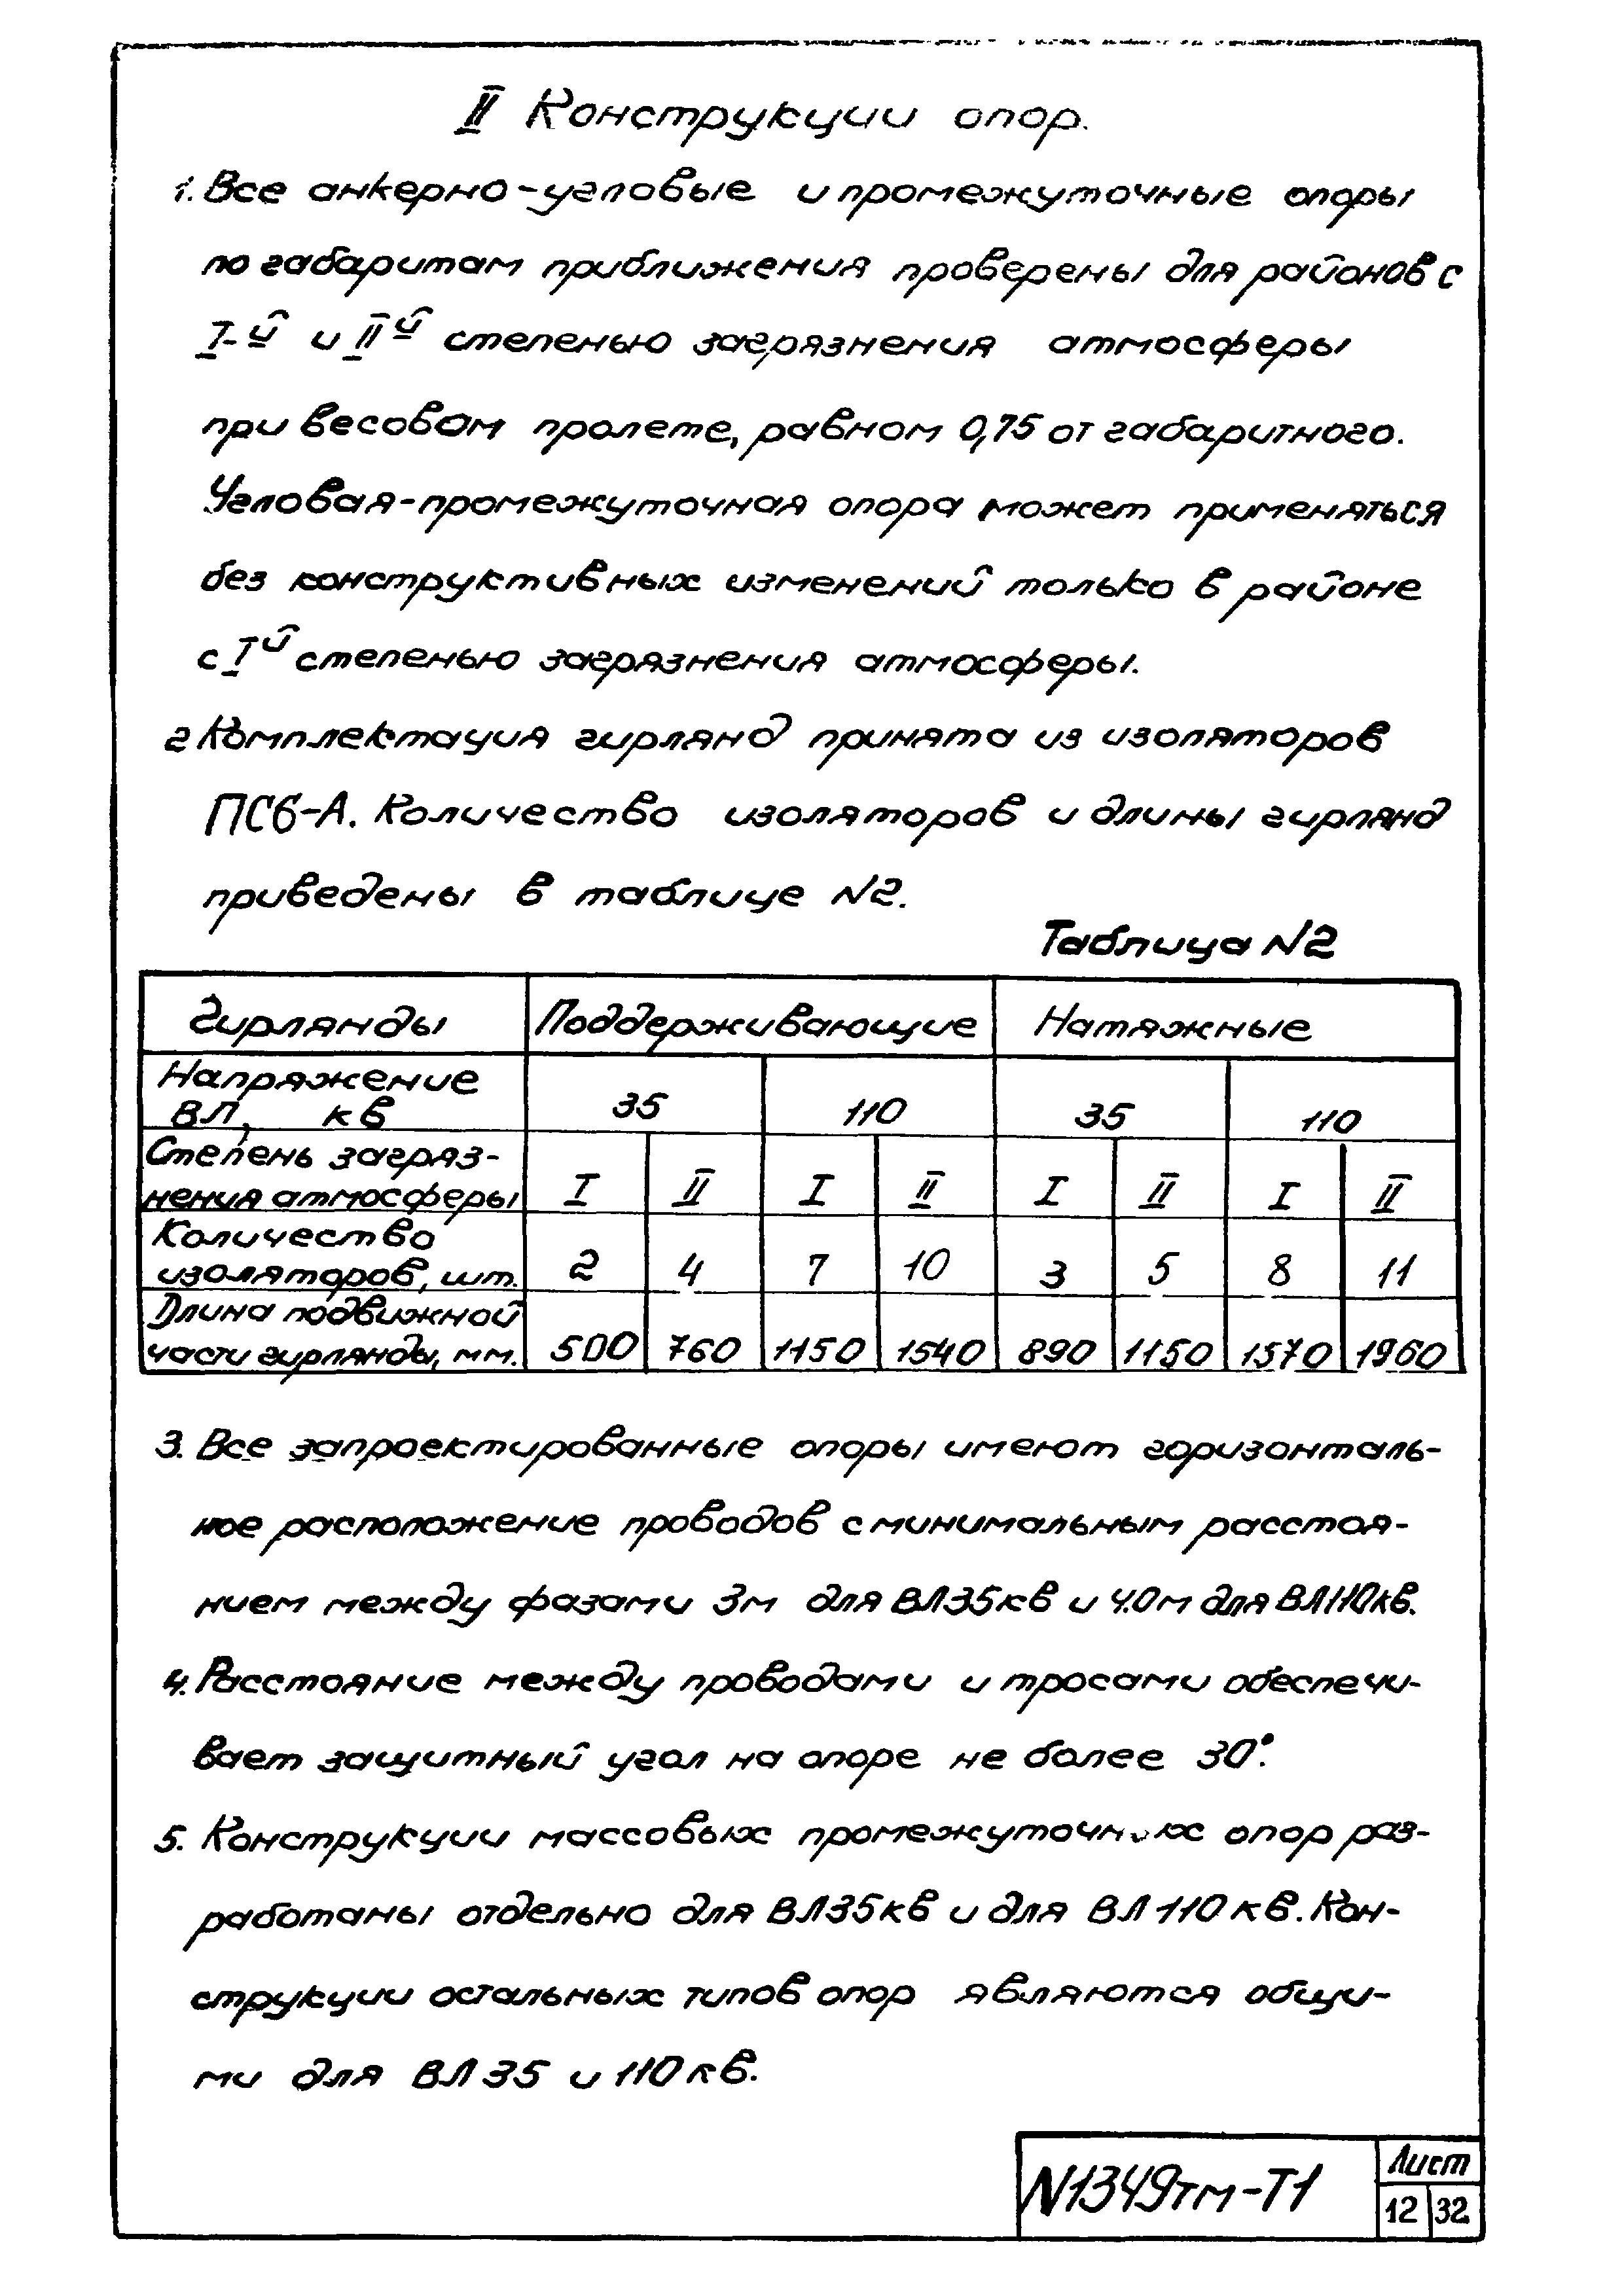 II Конструкции опор.
1. Все анкерно-угловые и промежуточные опоры
по габаритам приближения проверены для районов с
I-й и II й степенью загрязнения атмосферы
при весовом пролете, равном 0,75 от габаритного.
Угловая-промежуточная опора может применяться
без конструктивных изменений только в районе
с I й степенью загрязнения атмосферы.
2 Комплектация гирлянд принята из изоляторов
ПС6-А. Количество изоляторов и длины гирлянд
приведены в таблице N2.
Таблица N2
Гирлянды Поддерживающие Натяжные
Напряжение
ВЛ, кв 35 110 35 110
Степень загряз-
нения атмосферы I II I II I II I II
Количество
изоляторов, шт. 2 4 7 10 3 5 8 11
Длина подвижной
части гирлянды, мм. 500 760 1150 1540 890 1150 1570 1960
3. Все запроектированные опоры имеют горизонталь-
ное расположение проводов с минимальным расстоя-
нием между фазами 3м для ВЛ35кв и 4.0м для ВЛ110кв.
4. Расстояние между проводами и тросами обеспечи-
вает защитный угол на опоре не более 30°.
5. Конструкции массовых промежуточных опор раз-
работаны отдельно для ВЛ35кв и для ВЛ 110кв. Кон-
струкции остальных типов опор являются общи-
ми для ВЛ 35 и 110кв.
N1349тм-Т1
Лист
12 32